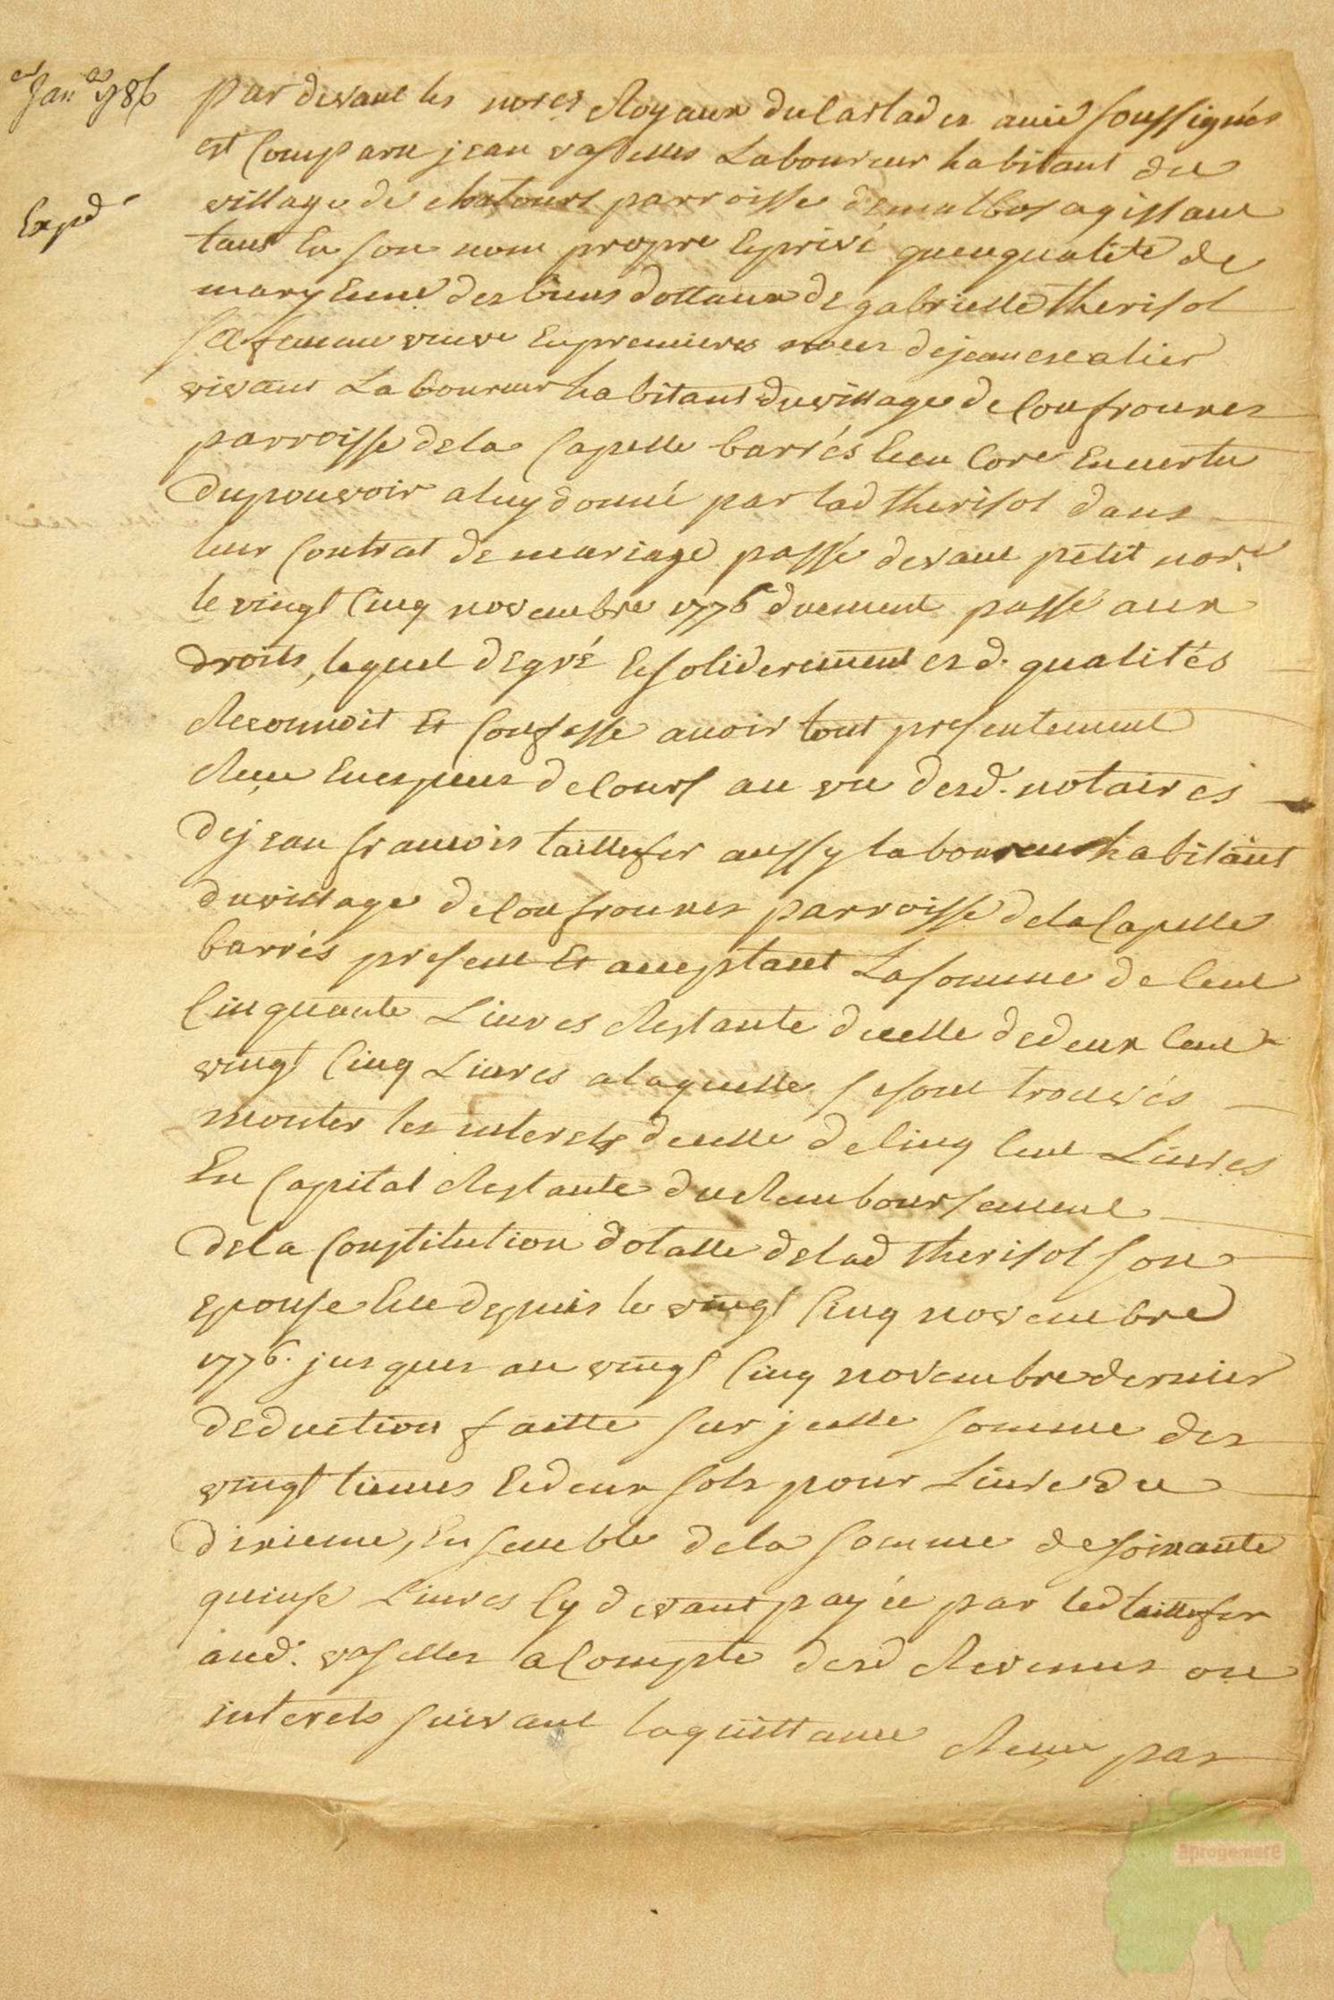 Janer 1786
par devant les nores Royaux du Carlades avic soussignés
est Comparu jean vaselles Laboureur habitant du
Expd
village de chatours parroisse de malbos agissant
tant En son nom propre Eprivé quenqualité de
mary Enne des biens dottaux de gabrielle therisol
sa femme veuve Enpremieres noces dejean escalier
vivant Laboureur habitant duvillage de Confrounes
parroisse dela Capelle barrés Een Core Envertu
dupouvoir aluy donné par lad therisol dans
leur Contrat de mariage passé devant petit nore
le vingt Cinq novembre 1776 duement passé aux
droits, lequel degré Esoliderement esd. qualités
Reconnoit Et Confesse avoir tout presentement
Reçu Enespeces deCours au vu desd. notaires
dejean francois taillefer aussy laboureur habitant
duvillage de Confrounes parroisse delaCapelle
barrés present Et acceptant La somme de Cent
Cinquante Livres Restante dicelle dedeux Cent
vingt Cinq Livres alaquelle sesont trouvés
monter les interets dicelle deCinq Cent Livres
En Capital Restante duRemboursement
dela Constitution dotalle delad therisol son
epouse Eue depuis le vingt Cinq novembre
1776. jusques au vingt Cinq novembre dernier
deduction faitte sur jcelle somme des
vingtiemes Edeux sols pour Livre du
dixieme, Ensemble dela somme desoixante
quinse Livres Cy devant payée par led taillefer
aud. vaselles aCompte desd Revenus ou
interets suivant laquittance Reçue par
aprogemere